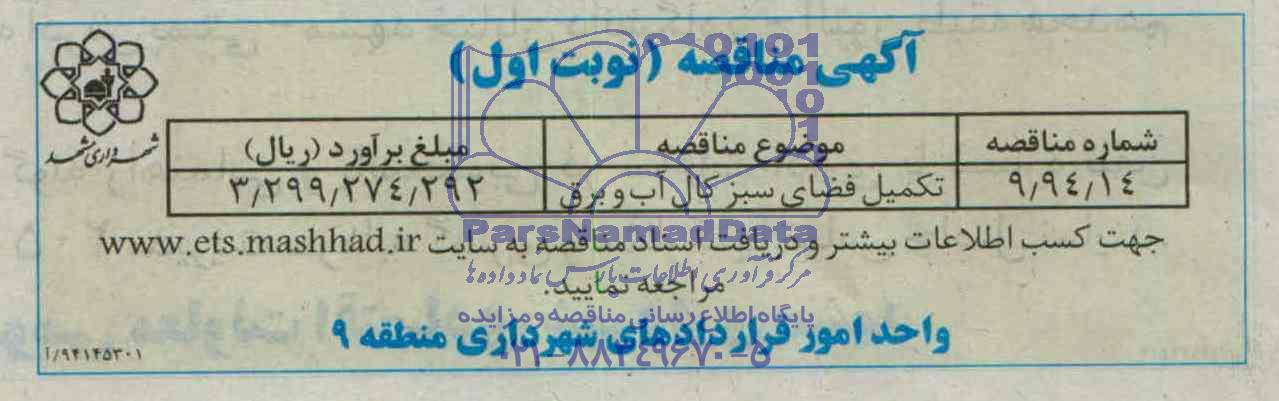 آگهی مناقصه (نوبت اول)
شهرداری مشهد
شماره مناقصه موضوع مناقصه مبلغ برآورد (ریال)
۹٫۹٤٫۱٤ تکمیل فضای سبز کال آب و برق ۳٫۲۹۹٫۲۷٤٫۲۹۲
جهت کسب اطلاعات بیشتر و دریافت اسناد مناقصه به سایت www.ets.mashhad.ir
مراجعه نمایید.
واحد امور قراردادهای شهرداری منطقه ۹
۹۴۱۴۵۳۰۱/آ
ParsNamadData
مرکز فرآوری اطلاعات پارس نماد داده ها
پایگاه اطلاع رسانی مناقصه و مزایده
۰۲۱-۸۸۳۴۹۶۷۰-۵